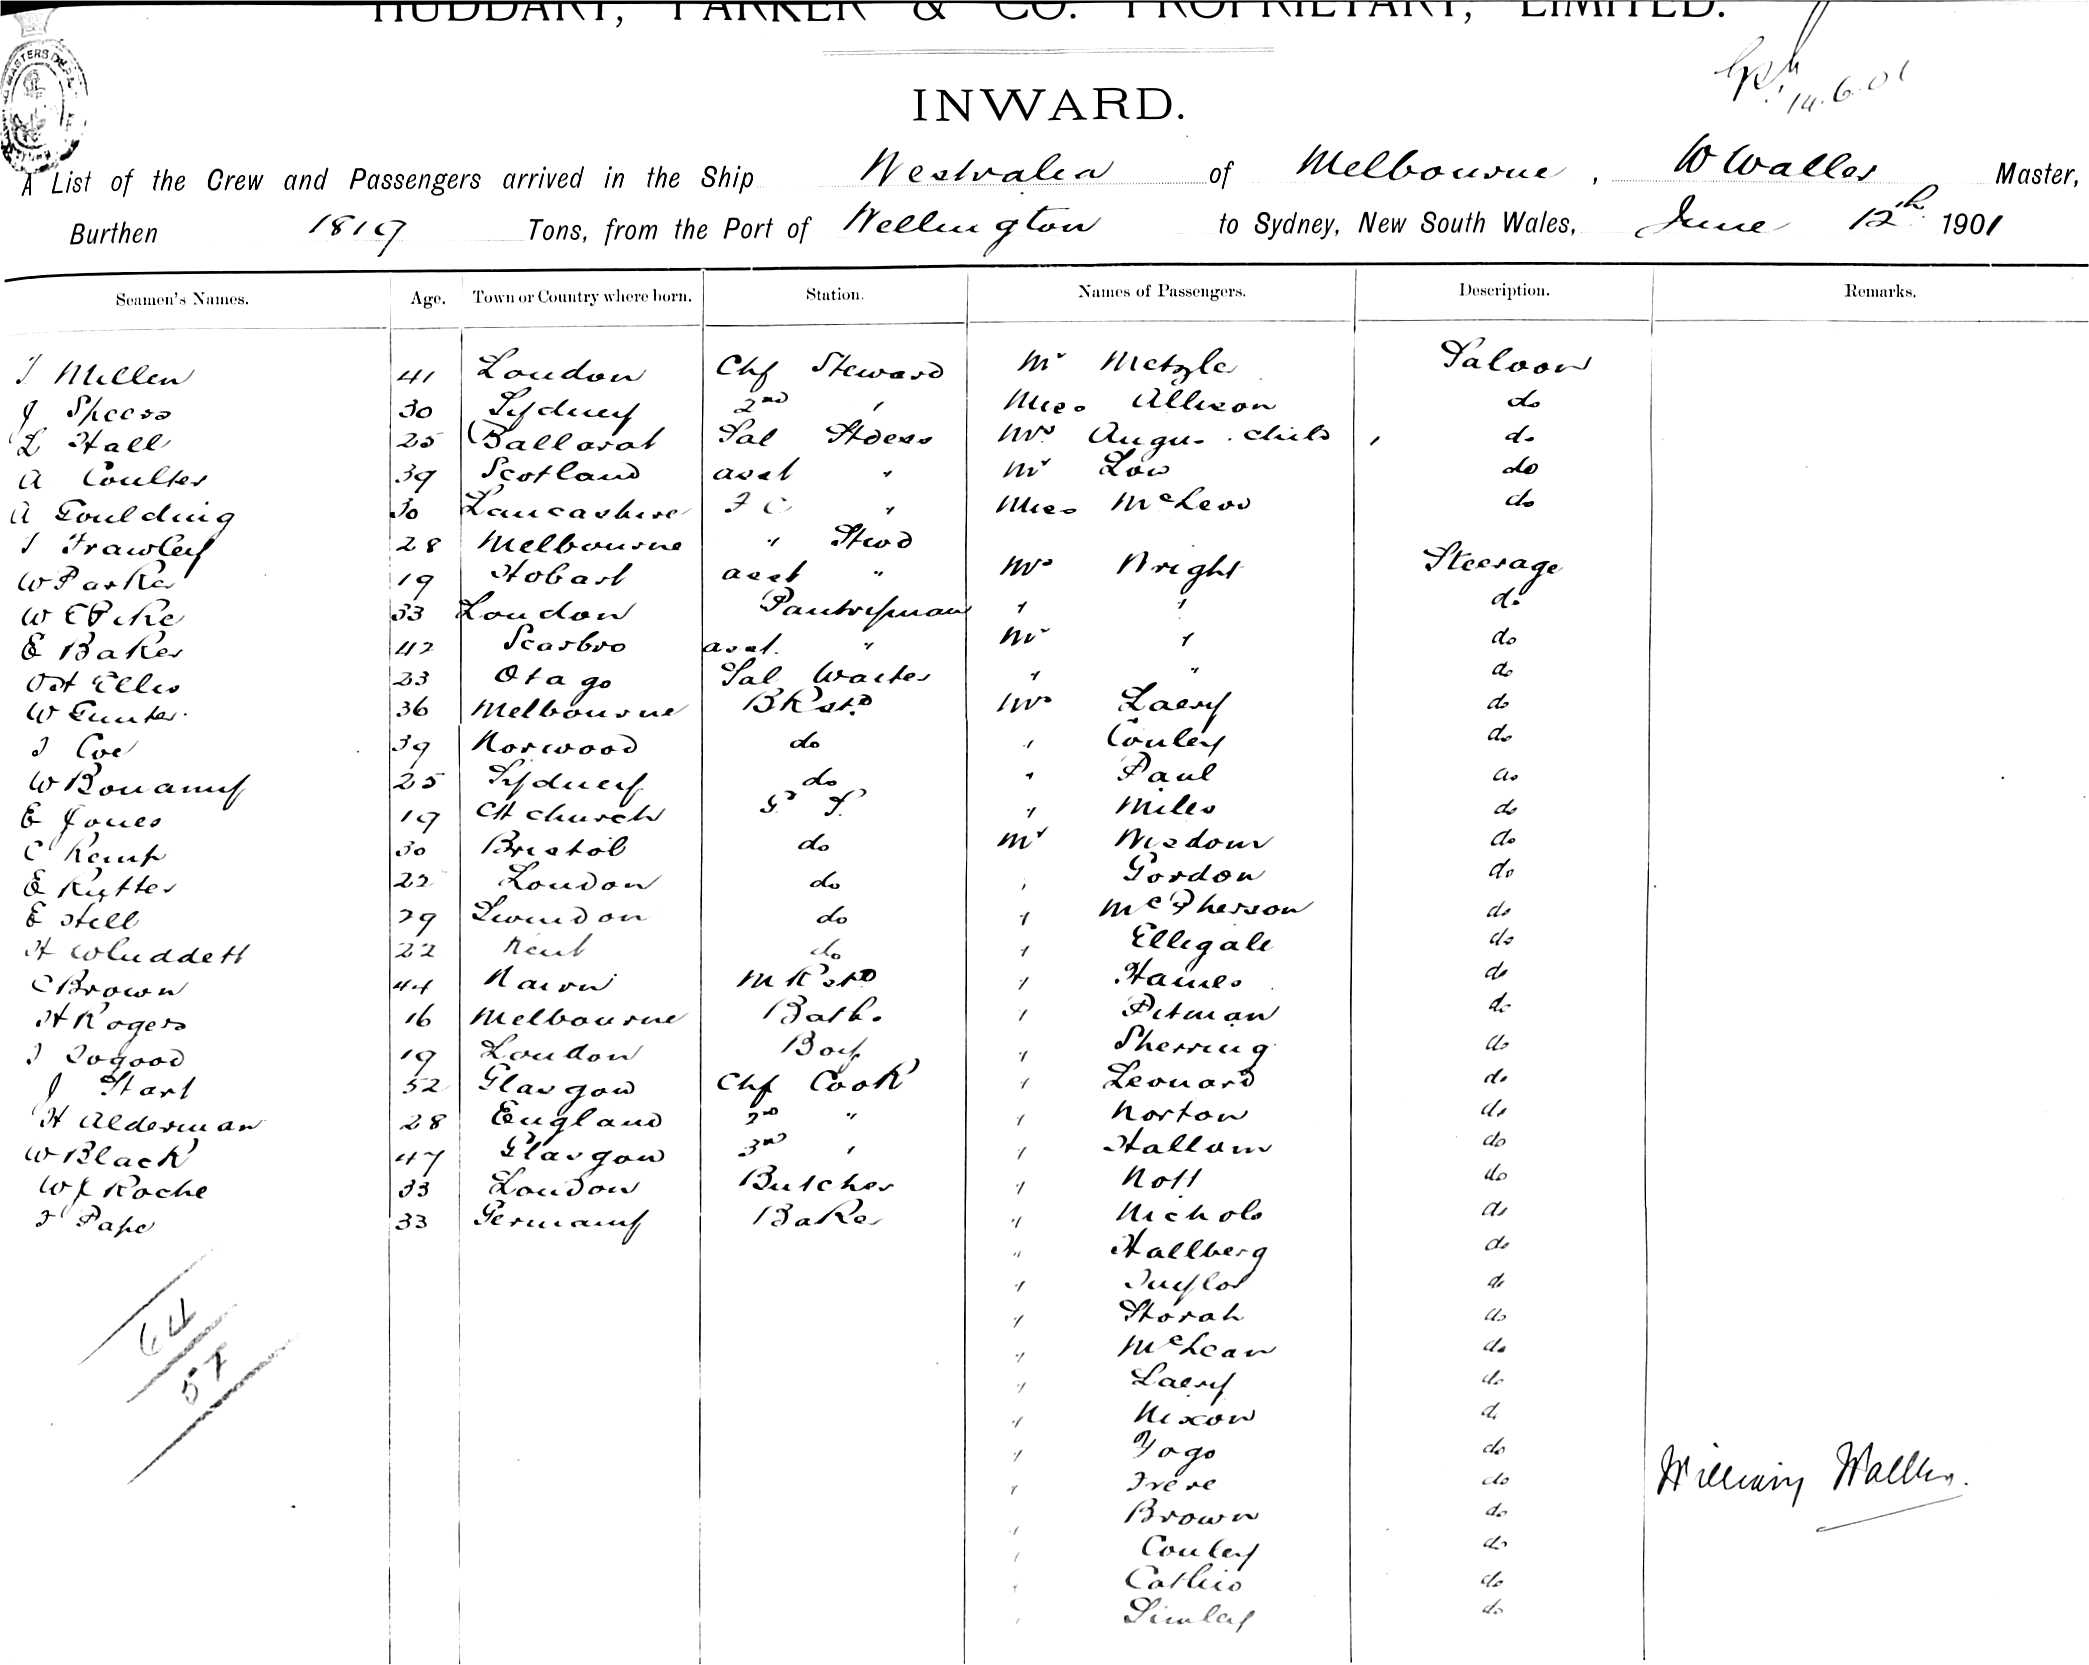 HUDDART, PARKER & CO. PROPRIETARY, LIMITED.
INWARD.
14.6.01
A List of the Crew and Passengers arrived in the Ship Westralia of Melbourne, W Waller Master,
Burthen 1819 Tons, from the Port of Wellington to Sydney, New South Wales, June 12th 1901
Seamen's Names. Age. Town or Country where born. Station. Names of Passengers. Description. Remarks.
T Millen 41 London Chf Steward Mr Metzle Saloon
J Speers 30 Sydney 2nd " Miss Allison do
L Hall 25 Ballarat Sal Stdess Mrs Angus . child , do
A Coulter 39 Scotland asst " Mr Low do
A Goulding 30 Lancashire F C " Miss McLeod do
T Frawley 28 Melbourne " Stwd
W Parker 19 Hobart asst " Mrs Wright Steerage
W E Pike 33 London Pantryman " " do
E Baker 42 Scarbro asst. " Mr " do
Ellis 23 Otago Sal Waiter " " do
W Gunter 36 Melbourne BKstd Mrs Laery do
T Coe 39 Norwood do " Conley do
W Bonamy 25 Sydney do " Paul do
E Jones 19 CH church G. S. " Miles do
C Kemp 30 Bristol do Mr Wisdom do
E Rutter 22 London do " Gordon do
E Still 29 Swindon do " McPherson do
H Whuddett 22 Kent do " Ellegale do
C Brown 44 Nairn M Kstd " Haines do
H Rogers 16 Melbourne Bath. " Pitman do
T Togood 19 London Boy " Sherring do
J Start 52 Glasgow Chf Cook " Leonard do
H Alderman 28 England 2nd " " Norton do
W Black 47 Glasgow 3rd " " Hallam do
W J Roche 33 London Butcher " Nott do
F Pape 33 Germany Baker " Nichols do
" Hallberg do
" Taylor do
" Storah do
" McLean do
" Laery do
" Nixon do
" Yogo do
" Frere do
" Brown do
" Conley do
" Cathie do
" Simley do
64
57
William Waller.